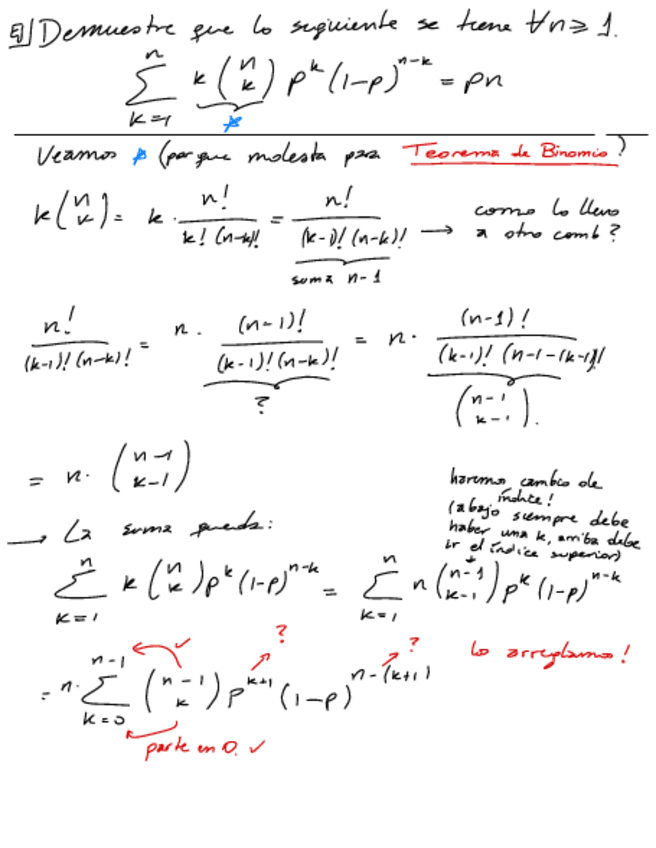 EJ) Demuestre que lo siguiente se tiene ∀n ≥ 1.
\sum_{k=1}^{n} k \binom{n}{k} p^k (1-p)^{n-k} = pn
Veamos (porque molesta para Teorema de Binomio?
k \binom{n}{k} = k \cdot \frac{n!}{k! (n-k)!} = \frac{n!}{(k-1)! (n-k)!} → como lo llevo
a otro comb?
suma n-1
\frac{n!}{(k-1)! (n-k)!} = n \cdot \frac{(n-1)!}{(k-1)! (n-k)!} = n \cdot \frac{(n-1)!}{(k-1)! (n-1-(k-1))!}
?
\binom{n-1}{k-1}.
= n \cdot \binom{n-1}{k-1}
haremos cambio de
índice!
(abajo siempre debe
haber una k, arriba debe
ir el índice superior)
→ La suma queda:
\sum_{k=1}^{n} k \binom{n}{k} p^k (1-p)^{n-k} = \sum_{k=1}^{n} n \binom{n-1}{k-1} p^k (1-p)^{n-k}
✓ ? ?
lo arreglamos!
= n \cdot \sum_{k=0}^{n-1} \binom{n-1}{k} p^{k+1} (1-p)^{n-(k+1)}
parte en 0. ✓